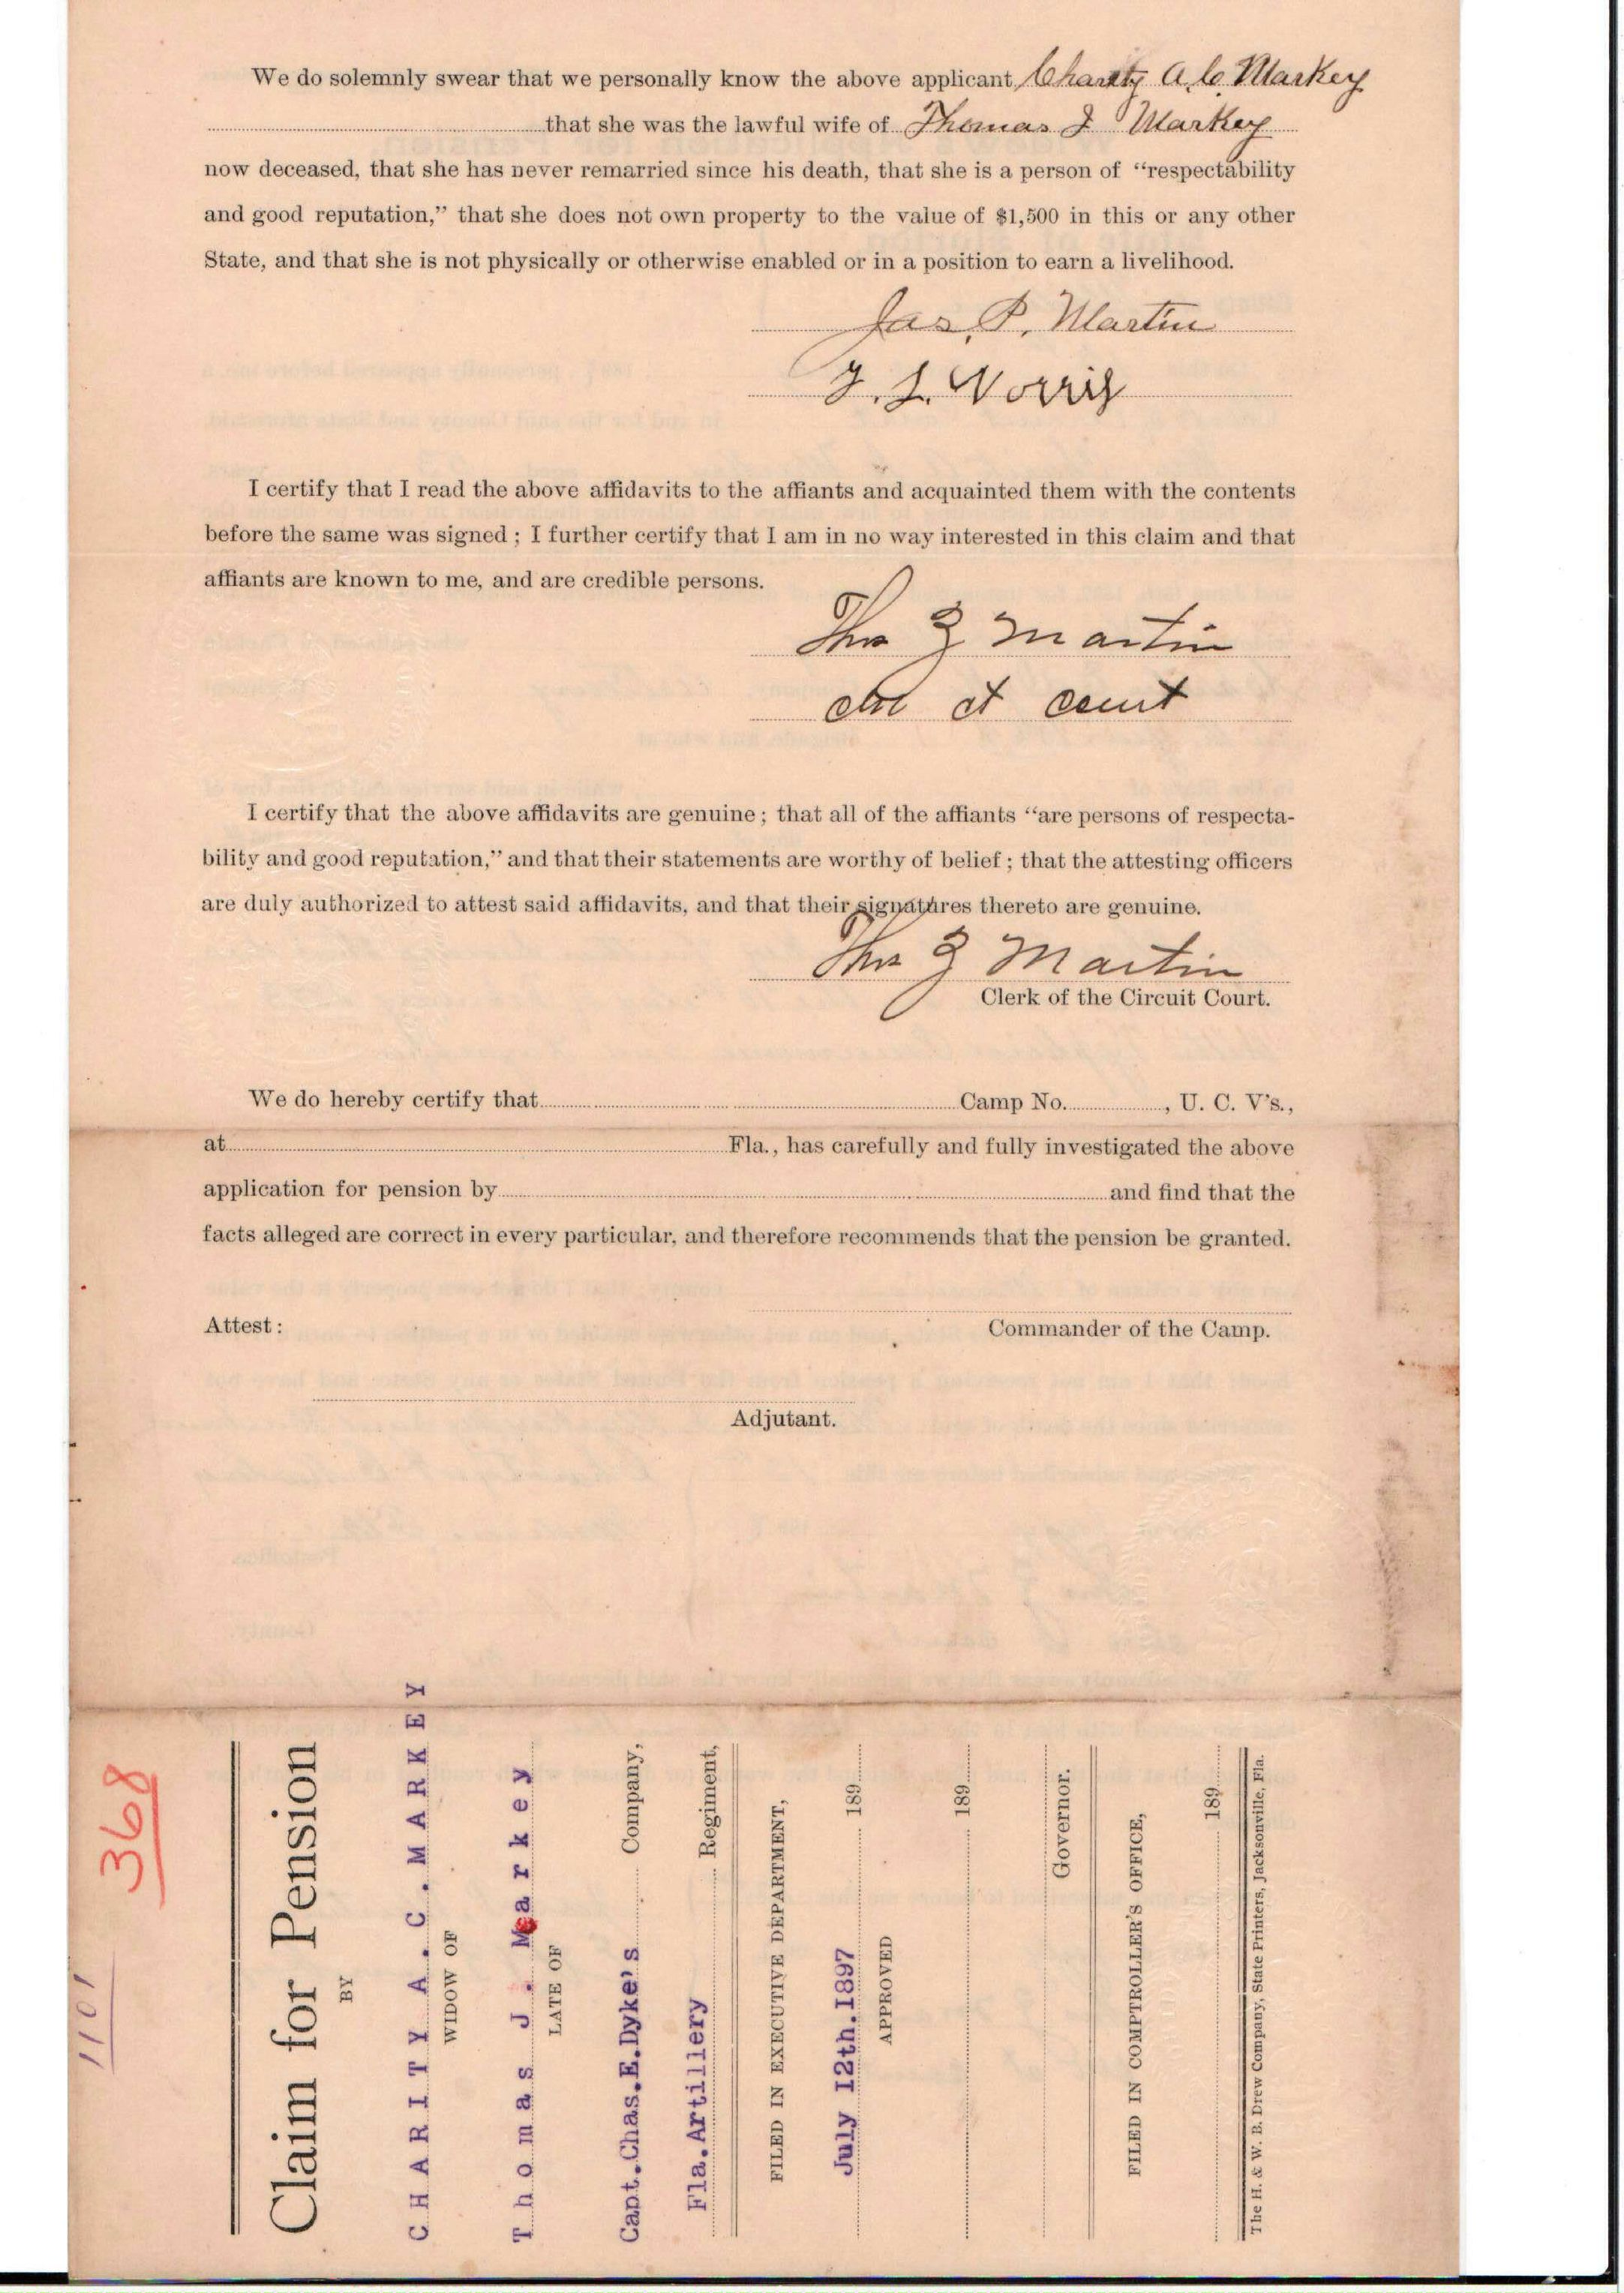 We do solemnly swear that we personally know the above applicant Charity A. C. Markey
that she was the lawful wife of Thomas J Markey
now deceased, that she has never remarried since his death, that she is a person of “respectability
and good reputation,” that she does not own property to the value of $1,500 in this or any other
State, and that she is not physically or otherwise enabled or in a position to earn a livelihood.
Jas. P. Martin
T. L. Norris
I certify that I read the above affidavits to the affiants and acquainted them with the contents
before the same was signed; I further certify that I am in no way interested in this claim and that
affiants are known to me, and are credible persons.
Thos J Martin
clk ct court
I certify that the above affidavits are genuine; that all of the affiants “are persons of respecta-
bility and good reputation,” and that their statements are worthy of belief; that the attesting officers
are duly authorized to attest said affidavits, and that their signatures thereto are genuine.
Thos J Martin
Clerk of the Circuit Court.
We do hereby certify that Camp No. , U. C. V’s.,
at Fla., has carefully and fully investigated the above
application for pension by and find that the
facts alleged are correct in every particular, and therefore recommends that the pension be granted.
Commander of the Camp.
Attest:
Adjutant.
1101
368
Claim for Pension
BY
CHARITY A. C. MARKEY
WIDOW OF
Thomas J. Markey
LATE OF
Capt.Chas.E.Dyke's Company,
Fla.Artillery Regiment,
FILED IN EXECUTIVE DEPARTMENT,
July 12th.1897 189
APPROVED
189
Governor.
FILED IN COMPTROLLER'S OFFICE,
189
The H. & W. B. Drew Company, State Printers, Jacksonville, Fla.